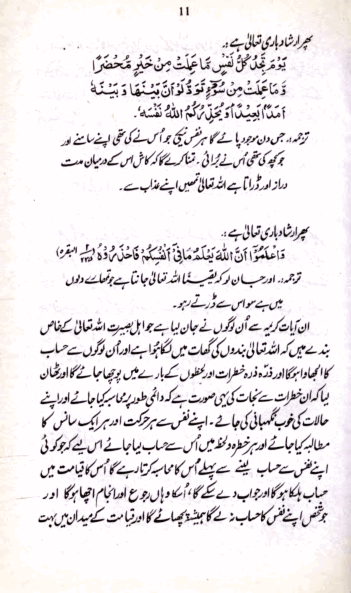 11
پھر ارشاد باری تعالیٰ ہے :۔
يَوْمَ تَجِدُ كُلُّ نَفْسٍ مَّا عَمِلَتْ مِنْ خَيْرٍ مُّحْضَرًا
وَمَا عَمِلَتْ مِنْ سُوْٓءٍ تَوَدُّ لَوْ اَنَّ بَيْنَهَا وَبَيْنَهٗ
اَمَدًۢا بَعِيْدًا وَيُحَذِّرُكُمُ اللهُ نَفْسَهٗ
ترجمہ :۔ جس دن موجود پائے گا ہر نفس نیکی جو اُس نے کی تھی اپنے سامنے اور
جو کچھ کی تھی اُس نے بُرائی ۔ تمنا کرے گا کہ کاش اس کے درمیان مدت
دراز اور ڈراتا ہے اللہ تعالیٰ تمھیں اپنے عذاب سے ۔
پھر ارشاد باری تعالیٰ ہے :۔
وَاعْلَمُوْٓا اَنَّ اللهَ يَعْلَمُ مَا فِيْٓ اَنْفُسِكُمْ فَاحْذَرُوْهُ (البقره ٢٣٥)
ترجمہ :۔ اور جان لو کہ یقیناً اللہ تعالیٰ جانتا ہے جو تمھارے دلوں
میں ہے سو اس سے ڈرتے رہو ۔
ان آیات کریمہ سے اُن لوگوں نے جان لیا ہے جو اہل بصیرت اللہ تعالیٰ کے خاص
بندے ہیں کہ اللہ تعالیٰ بندوں کی گھات میں لگا ہوا ہے اور اُن لوگوں سے حساب
کا الجھاوا ہوگا اور ذرہ ذرہ خطرات اور لحظوں کے بارے میں پوچھا جائے گا اور ٹھان
لیا کہ ان خطرات سے نجات کی یہی صورت ہے کہ دائمی طور پر محاسبہ کیا جائے اور اپنے
حالات کی خوب نگہبانی کی جائے ۔ اپنے نفس سے ہر حرکت اور ہر ایک سانس کا
مطالبہ کیا جائے اور ہر خطرہ و لحظہ میں اُس سے حساب لیا جائے اس لیے کہ جو کوئی
اپنے نفس سے حساب لینے سے پہلے اُس کا محاسبہ کرتا رہے گا اُس کا قیامت میں
حساب ہلکا ہوگا اور جواب دے سکے گا ، اُسکا وہاں رجوع اور انجام اچھا ہوگا اور
جو شخص اپنے نفس کا حساب نہ لے گا ہمیشہ پچھتائے گا اور قیامت کے میدان میں بہت